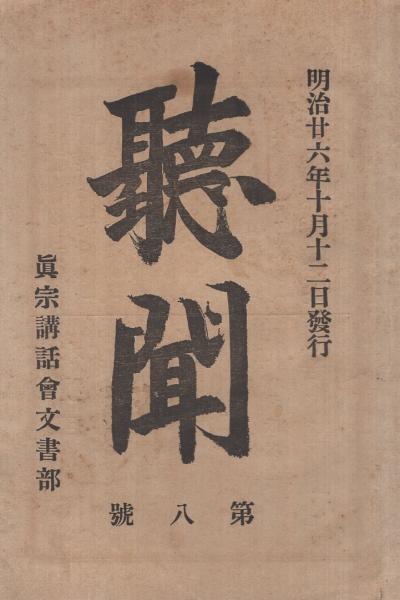 明治廿六年十月十二日發行
聽聞
第八號
眞宗講話會文書部